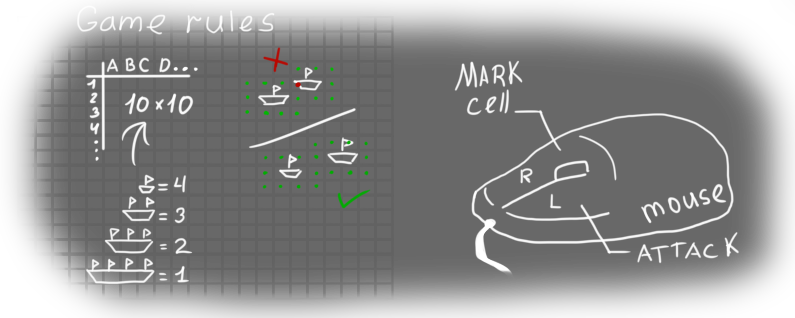 Game rules
A B C D...
1
2
3
4
10×10
= 4
= 3
= 2
= 1
MARK
cell
R
L
mouse
ATTACK